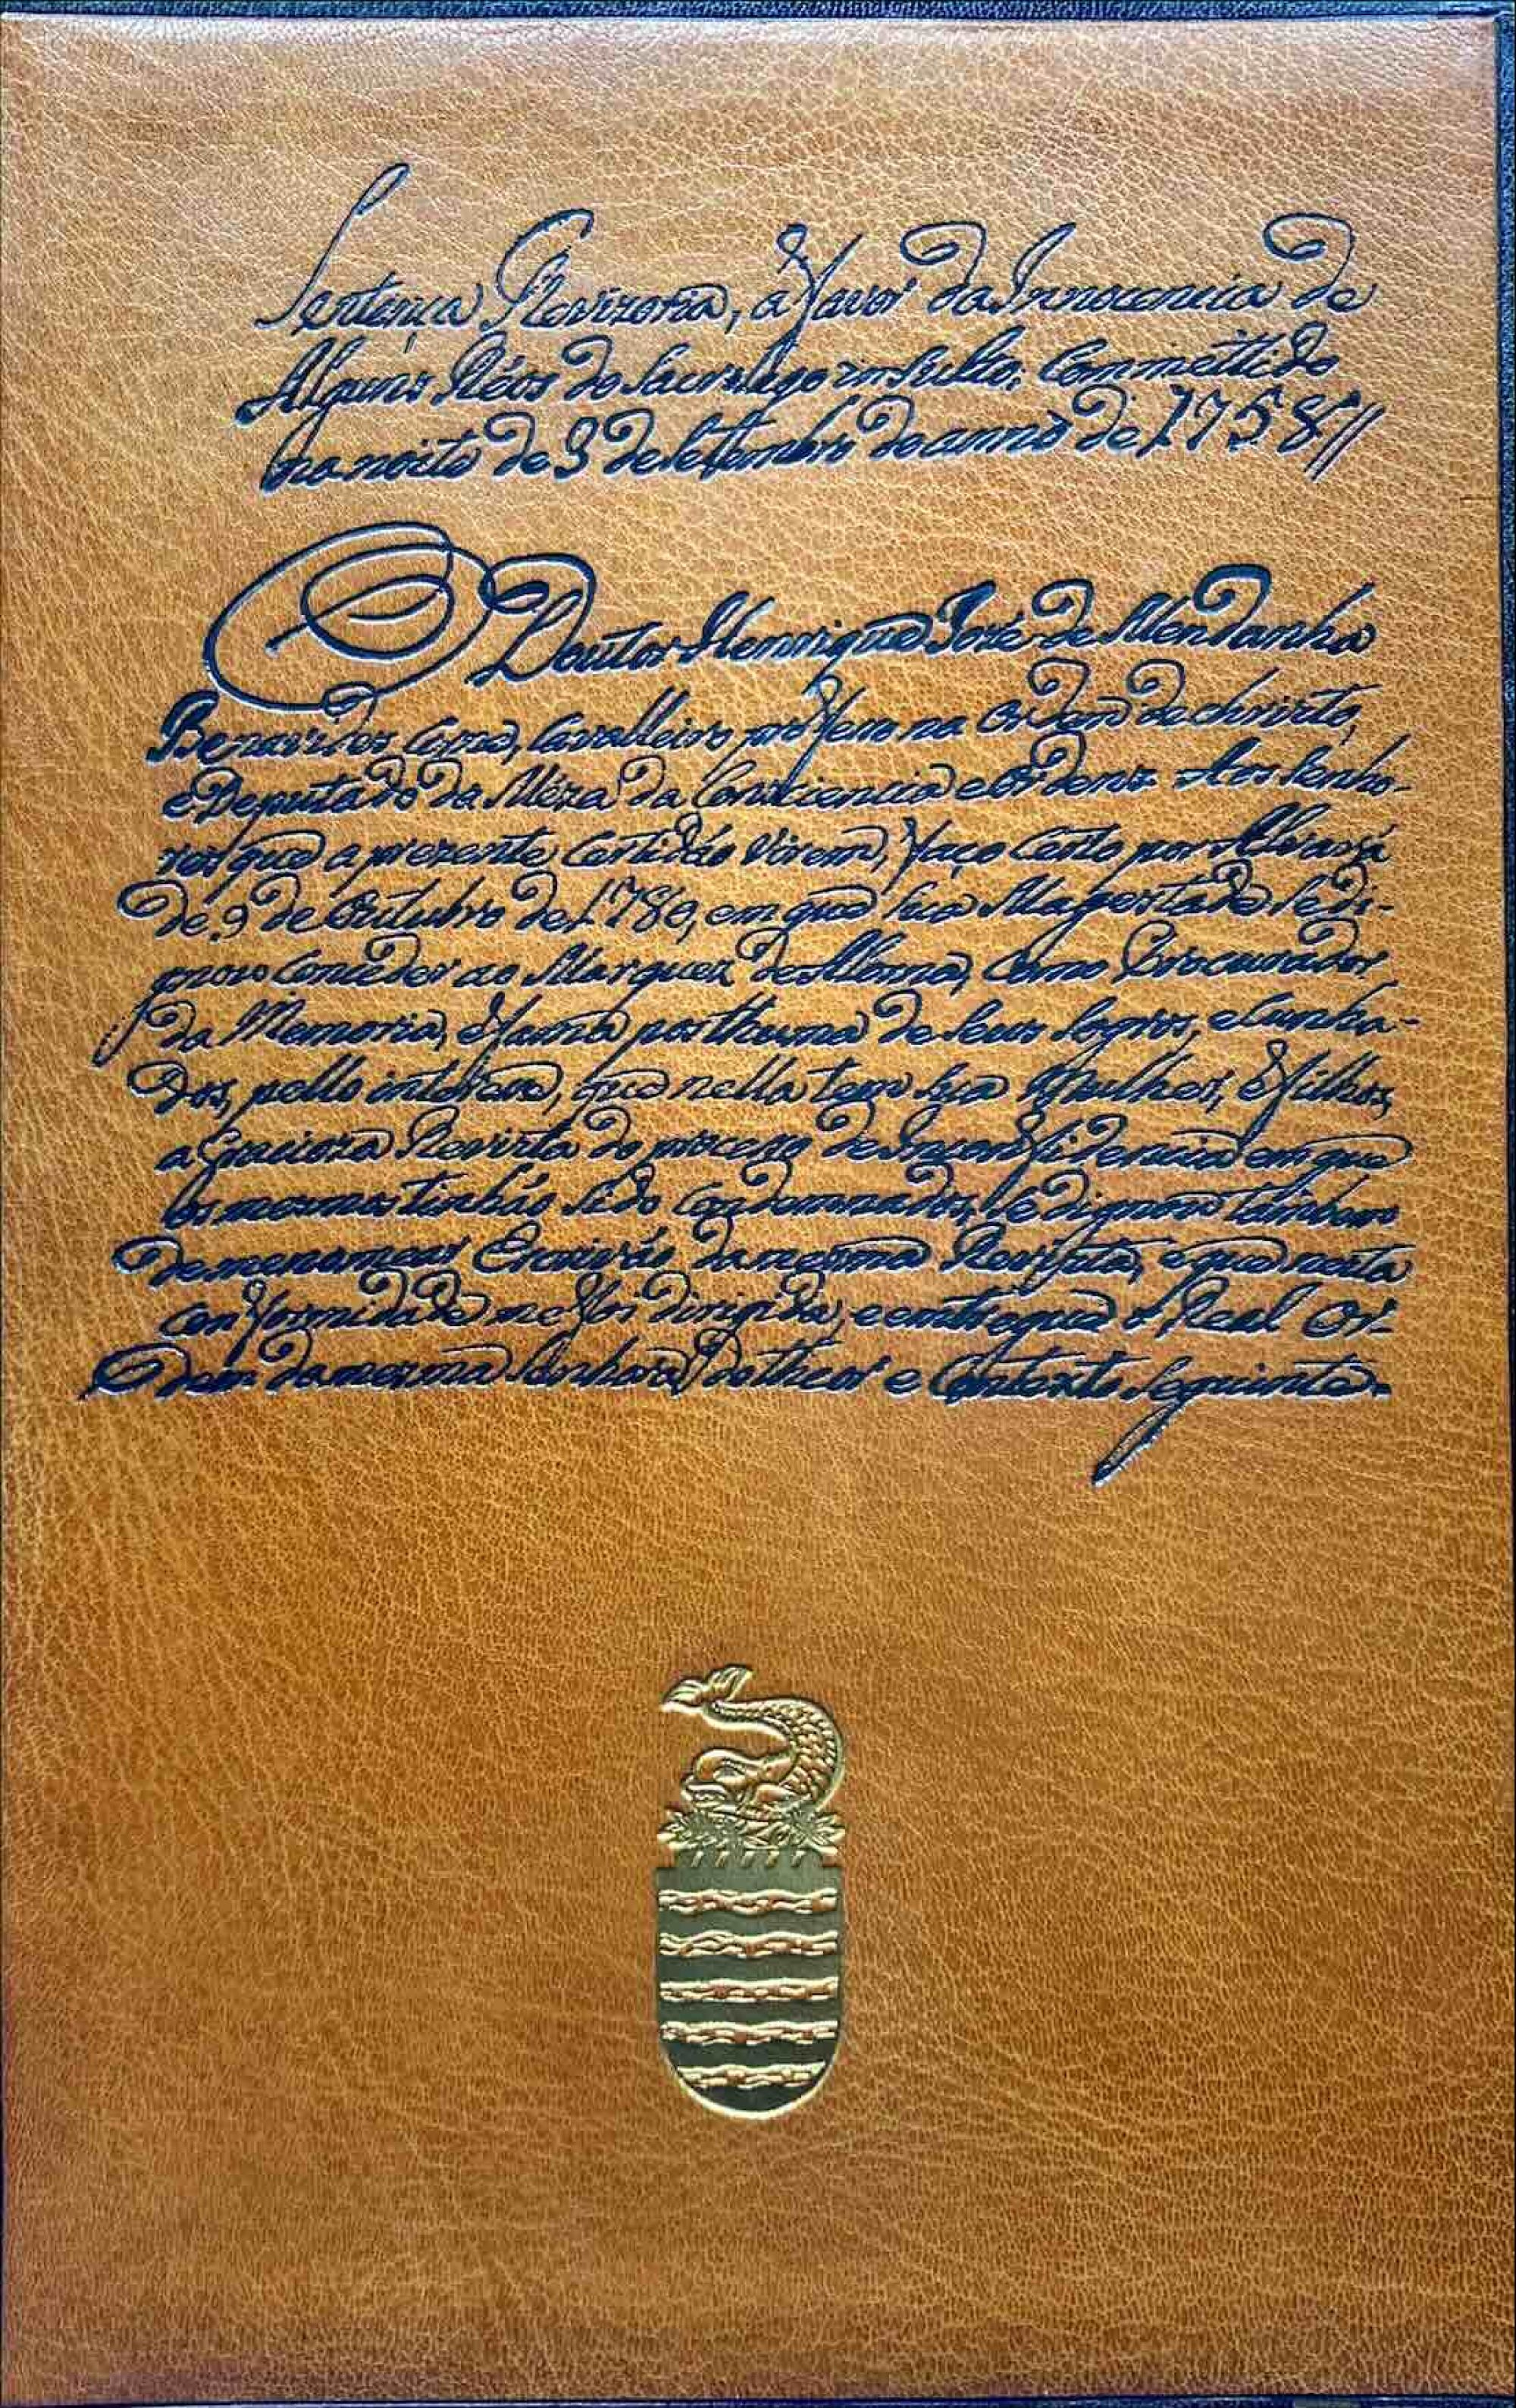 Sentença Revizoria, a favor da Innocencia de
Alguns Réos do Sacrilego insulto, Commettido
na noite de 3 de Setembro de anno de 1758//
O Doutor Henrique José de Mendanha
Benavides Cirne, Cavalleiro professo na Ordem de christo,
e Deputado da Mêza da Consciencia e Ordens Aos Senho-
res que a prezente Certidão virem, faço Certo por Alvará
de 9 de Outubro de 1780, em que Sua Magestade Se di-
gnou Conceder ao Marquez de Alorna, Como Procurador
da Memoria, e fama posthuma de Seus Sogros, e Cunha-
dos, pello interesse, que nella tem Sua Mulher, e filhos,
a Gracioza Revista do processo de Inconfidencia em que
os mesmos tinhão Sido Condamnados, Se dignou tambem
de me nomear Escrivão da mesma Revista, e que nesta
conformidade me foi dirigida, e entregue o Real Or-
dem da mesma Senhora Do theor e Contexto Seguinte.